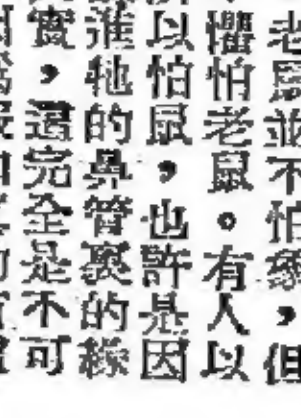 老鼠並不怕象，但
懼怕老鼠。有人以
以怕鼠，也許是因
進牠的鼻管裏的緣
實，還完全是不可